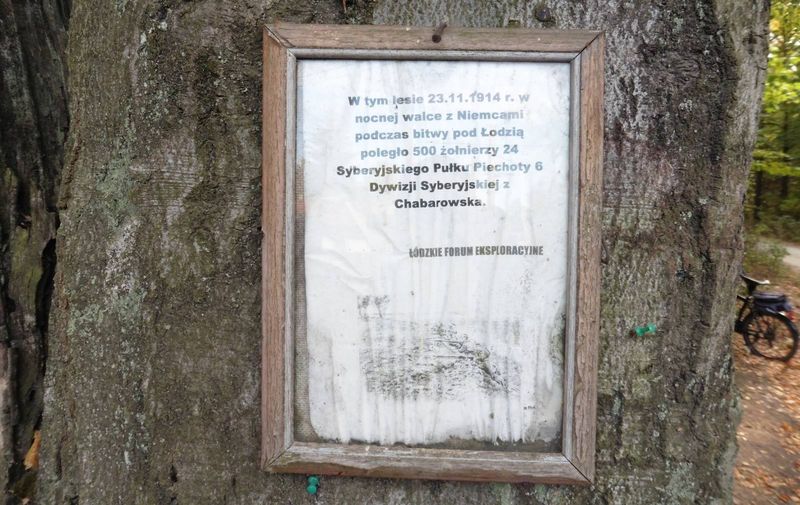 W tym lesie 23.11.1914 r. w
nocnej walce z Niemcami
podczas bitwy pod Łodzią
poległo 500 żołnierzy 24
Syberyjskiego Pułku Piechoty 6
Dywizji Syberyjskiej z
Chabarowska.
ŁÓDZKIE FORUM EKSPLORACYJNE